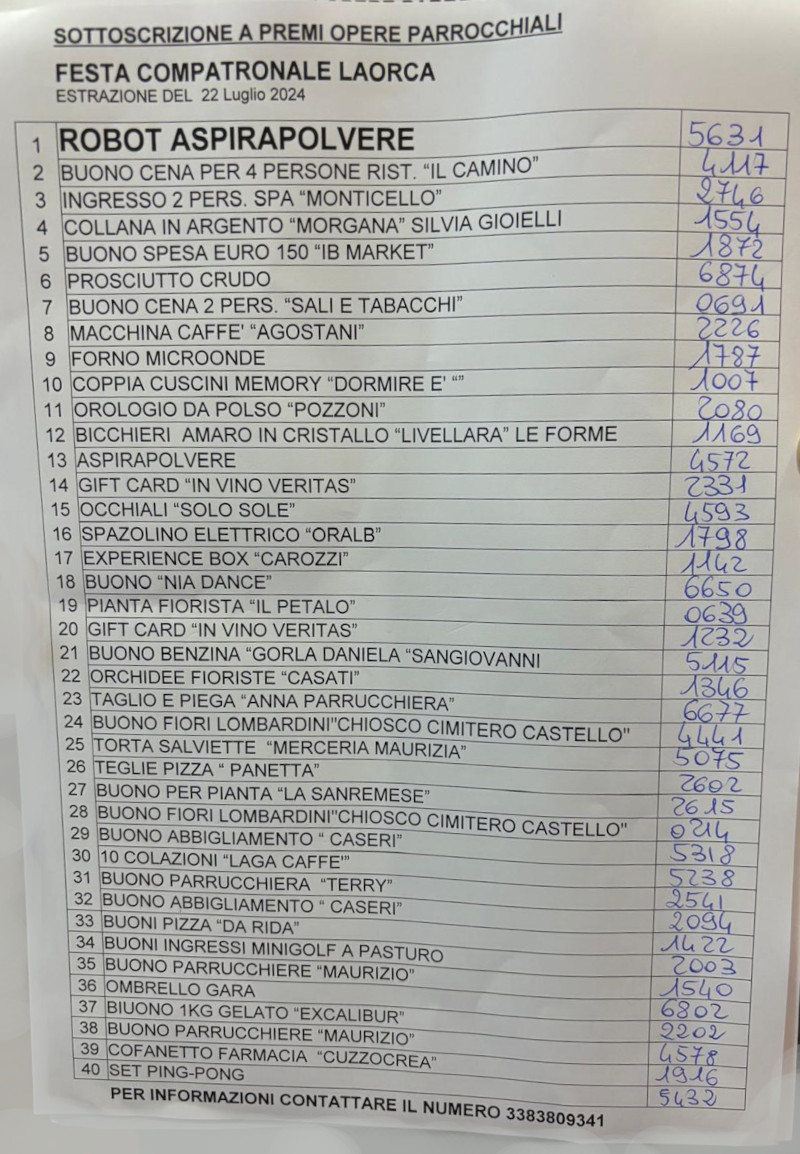 SOTTOSCRIZIONE A PREMI OPERE PARROCCHIALI
FESTA COMPATRONALE LAORCA
ESTRAZIONE DEL 22 Luglio 2024
1 ROBOT ASPIRAPOLVERE 5631
2 BUONO CENA PER 4 PERSONE RIST. “IL CAMINO” 4117
3 INGRESSO 2 PERS. SPA “MONTICELLO” 2746
4 COLLANA IN ARGENTO “MORGANA” SILVIA GIOIELLI 1554
5 BUONO SPESA EURO 150 “IB MARKET” 1872
6 PROSCIUTTO CRUDO 6874
7 BUONO CENA 2 PERS. “SALI E TABACCHI” 0691
8 MACCHINA CAFFE' “AGOSTANI” 2226
9 FORNO MICROONDE 1787
10 COPPIA CUSCINI MEMORY “DORMIRE E' “” 1007
11 OROLOGIO DA POLSO “POZZONI” 2080
12 BICCHIERI AMARO IN CRISTALLO “LIVELLARA” LE FORME 1169
13 ASPIRAPOLVERE 4572
14 GIFT CARD “IN VINO VERITAS” 2331
15 OCCHIALI “SOLO SOLE” 4593
16 SPAZOLINO ELETTRICO “ORALB” 1798
17 EXPERIENCE BOX “CAROZZI” 1142
18 BUONO “NIA DANCE” 6650
19 PIANTA FIORISTA “IL PETALO” 0639
20 GIFT CARD “IN VINO VERITAS” 1232
21 BUONO BENZINA “GORLA DANIELA “SANGIOVANNI 5115
22 ORCHIDEE FIORISTE “CASATI” 1346
23 TAGLIO E PIEGA “ANNA PARRUCCHIERA” 6677
24 BUONO FIORI LOMBARDINI"CHIOSCO CIMITERO CASTELLO" 4441
25 TORTA SALVIETTE “MERCERIA MAURIZIA” 5075
26 TEGLIE PIZZA “ PANETTA” 2602
27 BUONO PER PIANTA “LA SANREMESE” 2615
28 BUONO FIORI LOMBARDINI"CHIOSCO CIMITERO CASTELLO" 0214
29 BUONO ABBIGLIAMENTO “ CASERI” 5318
30 10 COLAZIONI “LAGA CAFFE'” 5238
31 BUONO PARRUCCHIERA “TERRY” 2541
32 BUONO ABBIGLIAMENTO “ CASERI” 2094
33 BUONI PIZZA “DA RIDA” 1422
34 BUONI INGRESSI MINIGOLF A PASTURO 2003
35 BUONO PARRUCCHIERE “MAURIZIO” 1540
36 OMBRELLO GARA 6802
37 BIUONO 1KG GELATO “EXCALIBUR” 2202
38 BUONO PARRUCCHIERE “MAURIZIO” 4578
39 COFANETTO FARMACIA “CUZZOCREA” 1916
40 SET PING-PONG 5432
PER INFORMAZIONI CONTATTARE IL NUMERO 3383809341